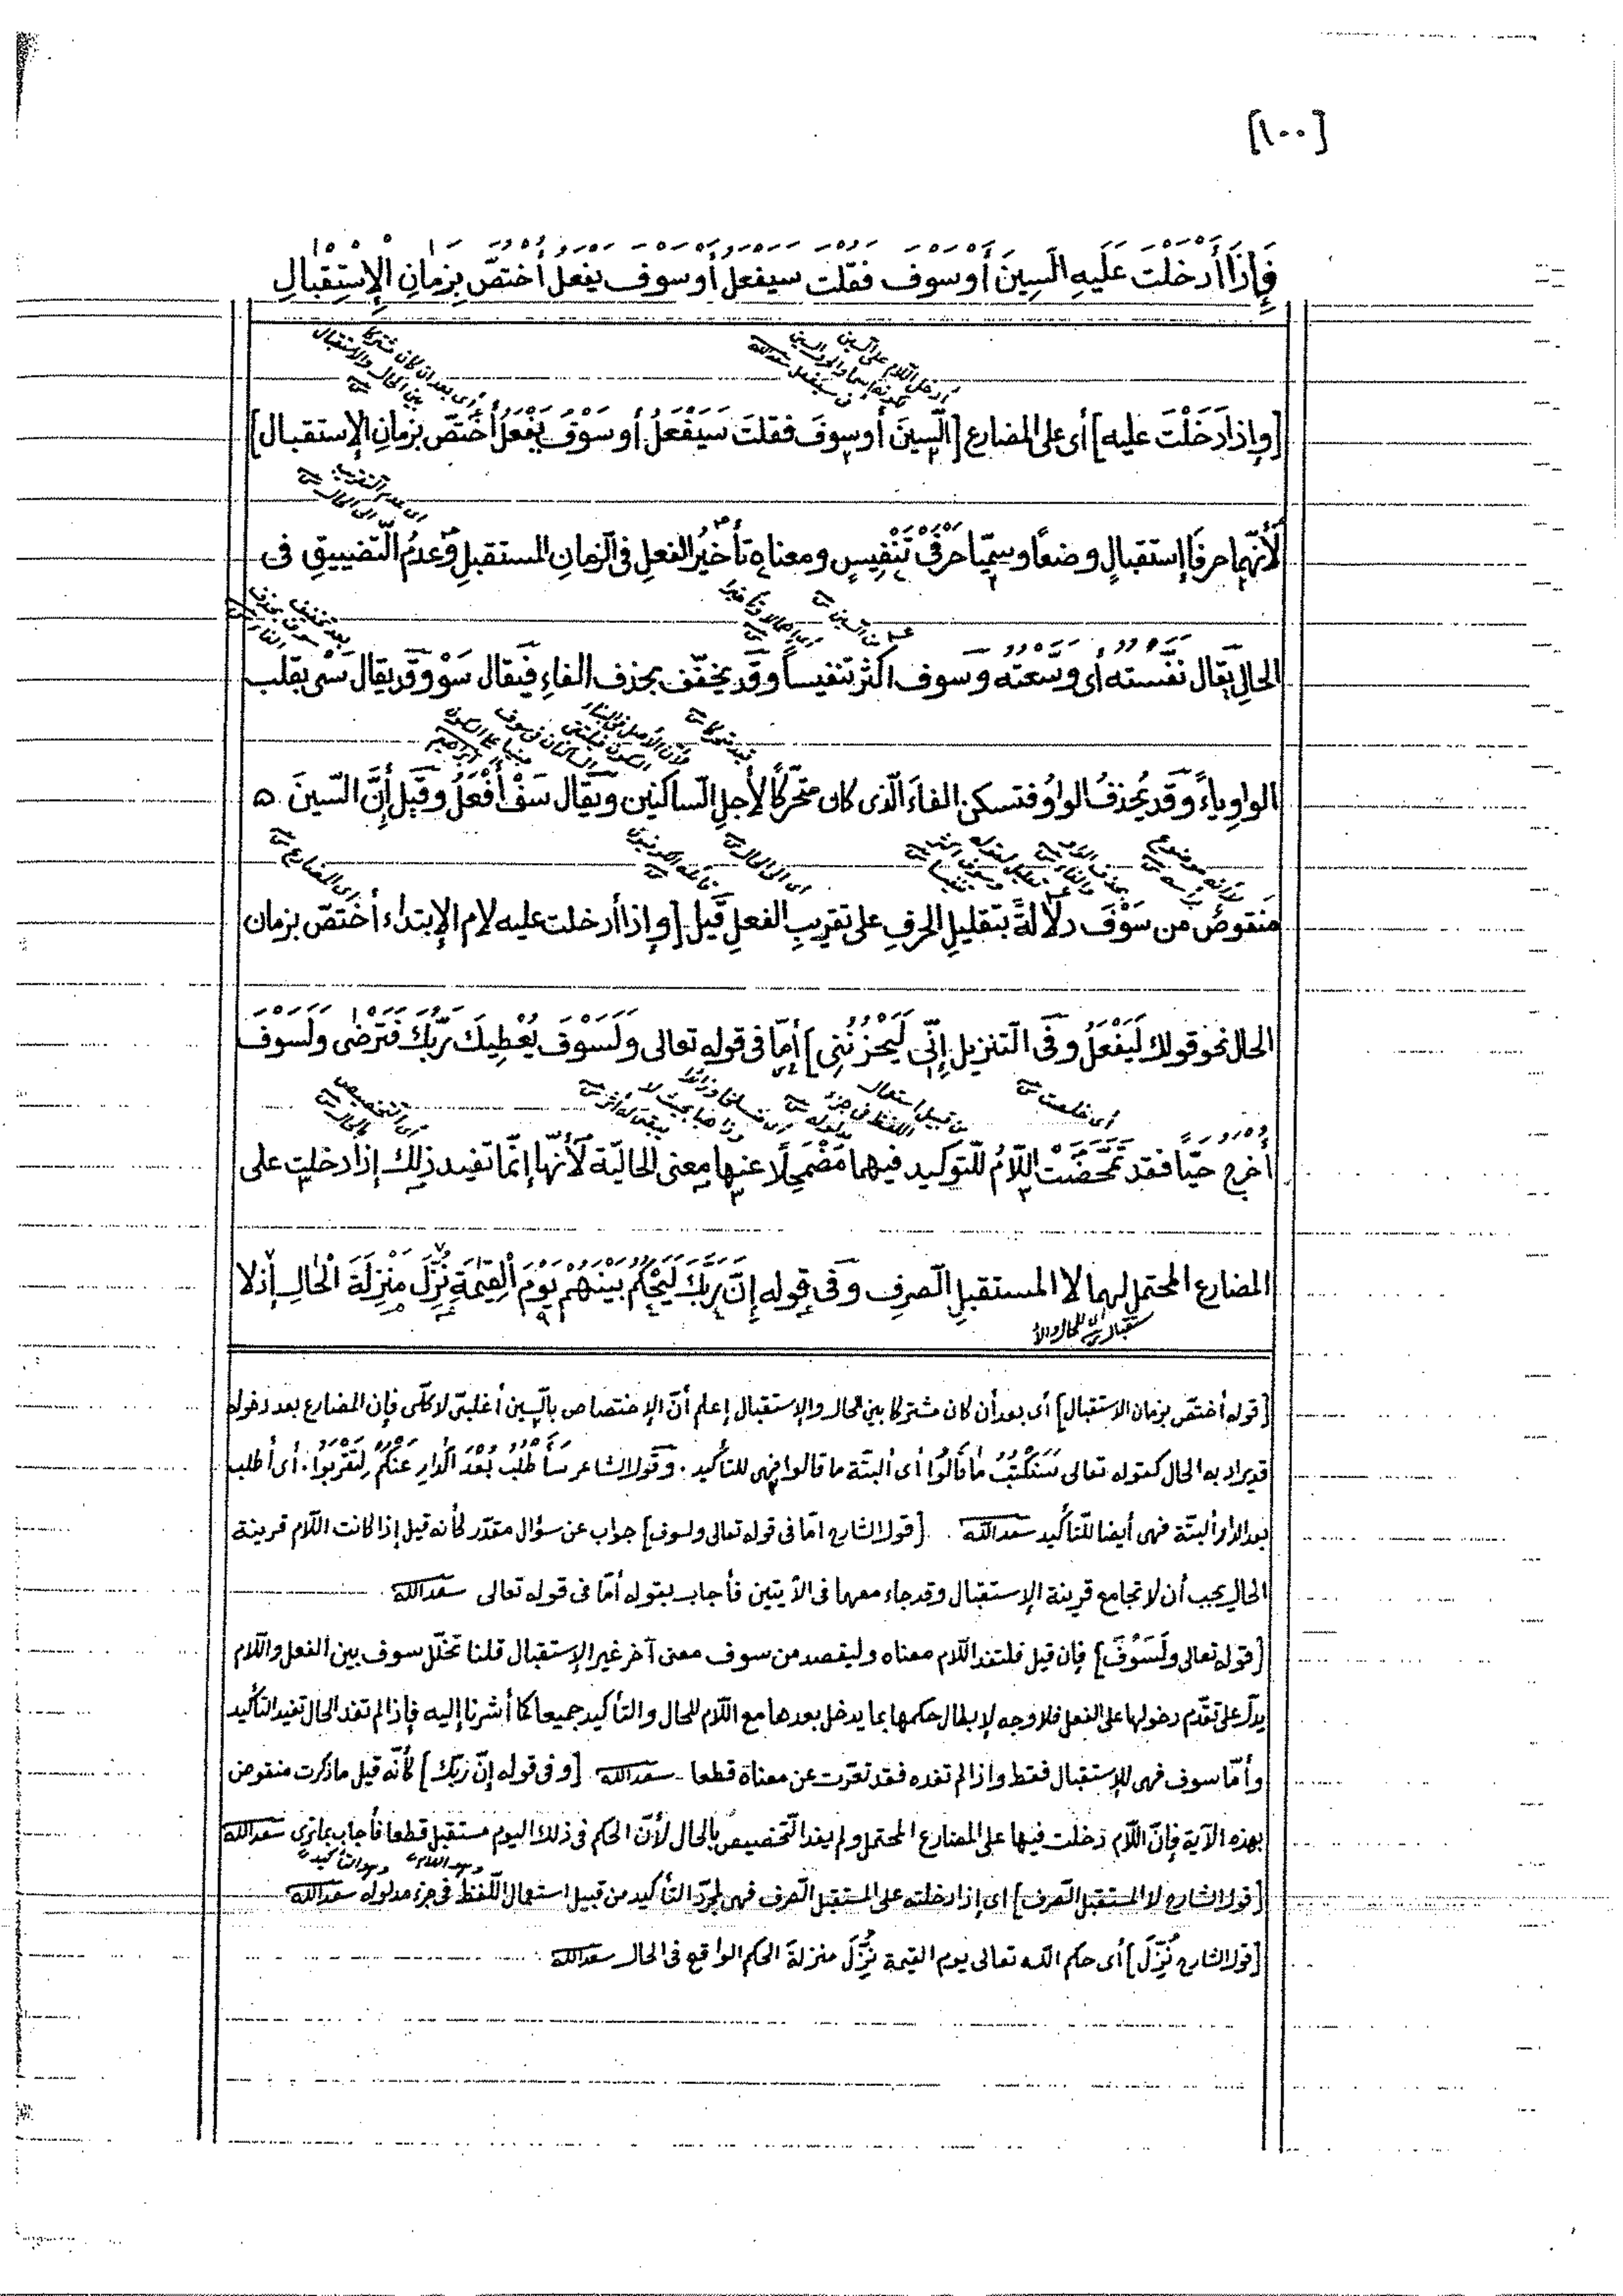 [١٠٠]
فَإِذَا أَدْخَلْتَ عَلَيهِ السِينَ أَوْ سَوْفَ فَقُلْتَ سَيَفْعَلُ أَوْ سَوْفَ يَفْعَلُ أُخْتُصَّ بِزَمَانِ الْإِسْتِقْبَالِ
أى بعد ان كان مشتركا بين الحال والاستقبال
[وإذا دَخَلْتَ عليه] أى على المضارع [السِّينَ أو سوفَ فقلتَ سَيَفْعَلُ أو سَوْفَ يَفْعَلُ أُختُصّ بزمانِ الإستقبال]
لأنّهما حرفَا إستقبالٍ وضعًا وسمّيا حَرْفَىْ تَنْفِيسٍ ومعناه تأخيرُ الفعلِ فى الزمانِ المستقبلِ وعدمُ التّضييقِ فى
الحالِ يقال نفّسته أى وسّعته وسوف اكثر تنفيساً وقد يخفّف بحذف الفاءِ فيقال سَوْ وقد يقال سَىْ بقلب
الواوِ ياءً وقد يُحذفُ الواوُ فتسكن الفاءَ الّذى كان متحرّكًا لأجلِ السّاكنين ويقال سَفْ أَفْعَلُ وقيل إنَّ السّينَ
منقوصٌ من سَوْفَ دلالةً بتقليلِ الحرفِ على تقريبِ الفعلِ قيل [وإذا أدخلت عليه لام الإبتداء أختصّ بزمان
الحال نحو قولك لَيَفْعَلُ وفى التّنزيل إنّى لَيَحْزُنُنِى] أمّا فى قوله تعالى وَلَسَوْفَ يُعْطِيكَ رَبُّكَ فَتَرْضٰى ولَسَوف
أخرج حيّا فقد تَمَحَّضَتْ اللّامُ للتّوكيد فيهما مُضْمَحِلًا عنها معنى الحاليّة لأنّها إنّما تفيد ذلك إذا دخلت على
المضارع المحتمل لهما لا المستقبلِ الصّرفِ وفى قوله إنّ رَبَّكَ لَيَحْكُمُ بَيْنَهُمْ يَوْمَ الْقِيٰمَةِ نُزِّلَ مَنْزِلَةَ الْحَالِ إذ لا
[قوله أختصّ بزمان الاستقبال] أى بعد أن كان مشتركا بين الحال والإستقبال إعلم أنّ الإختصاص بالسّين أغلبىّ لا كلّى فإن المضارع بعد دخوله
قد يراد به الحال كقوله تعالى سَنَكْتُبُ مَا قَالُوا أى ألبتّة ما قالوا فهى للتأكيد . وقول الشاعر سَأَطْلُبُ بُعْدَ الدَّارِ عَنْكُمْ لِتَقْرَبُوا . أى أطلب
بعد الدار ألبتّة فهى أيضا للتأكيد سعدالله . [قول الشارح امّا فى قوله تعالى ولسوف] جواب عن سؤال مقدّر كأنه قيل إذا كانت اللّام قرينة
الحال يجب أن لا تجامع قرينة الإستقبال وقد جاء معهما فى الآيتين فأجاب بقوله أمّا فى قوله تعالى سعدالله
[قوله تعالى ولَسَوْفَ] فإن قيل فلتفد اللّام معناه وليقصد من سوف معنى آخر غير الإستقبال قلنا تخلّل سوف بين الفعل واللّام
يدلّ على تقدّم دخولها على الفعل فلا وجه لإبطال حكمها بما يدخل بعدها مع اللّام للحال والتأكيد جميعا كما أشرنا إليه فإذا لم تفد الحال تفيد التأكيد
وأمّا سوف فهى للإستقبال فقط وإذا لم تفده فقد تعرّت عن معناه قطعا سعدالله [وفى قوله إنّ ربّك] كأنّه قيل ما ذكرت منقوض
بهذه الآية فإنّ اللّام دخلت فيها على المضارع المحتمل ولم يفد التّخصيص بالحال لأنّ الحكم فى ذلك اليوم مستقبل قطعا فأجاب بما ترى سعدالله
[قول الشارح لا المستقبل الصّرف] اى إذا دخلته على المستقبل الصّرف فهى لمجرّد التأكيد من قبيل استعمال اللّفظ فى جزء مدلوله سعدالله
[قول الشارح نُزِّلَ] أى حكم الله تعالى يوم القيمة نُزِّلَ منزلةَ الحكم الواقع فى الحال سعدالله